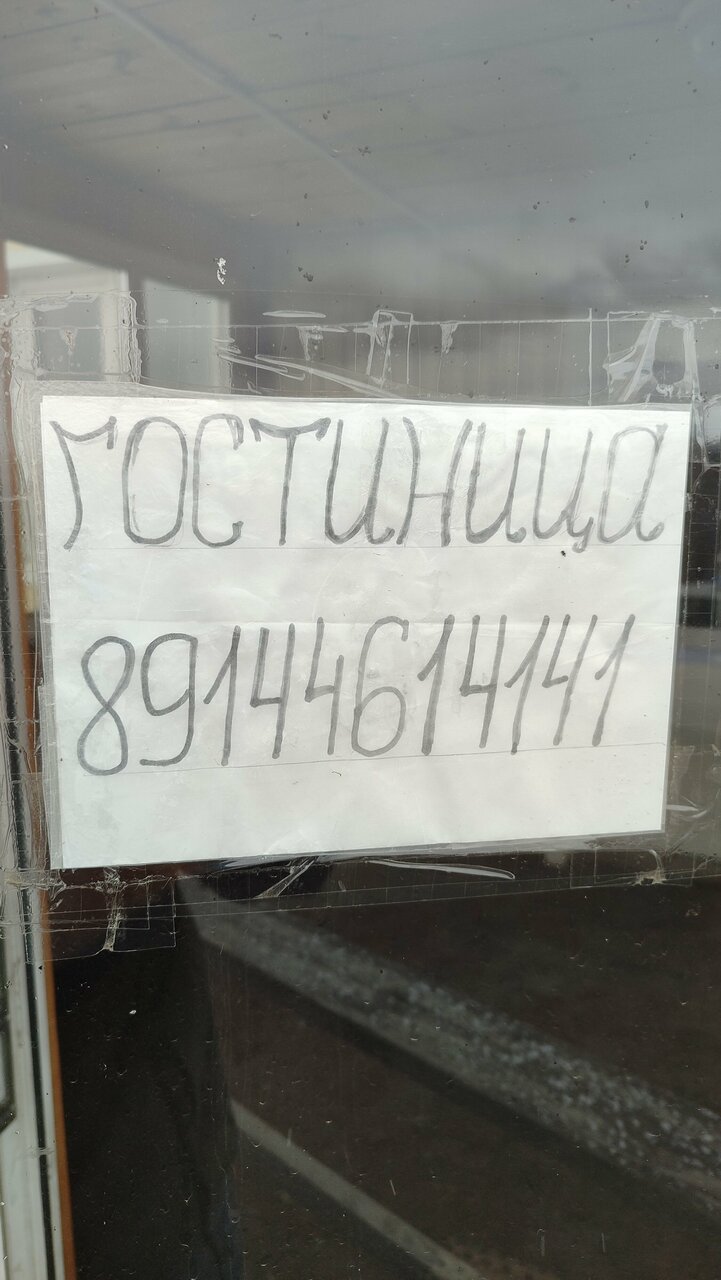 ГОСТИНИЦА
89144614141